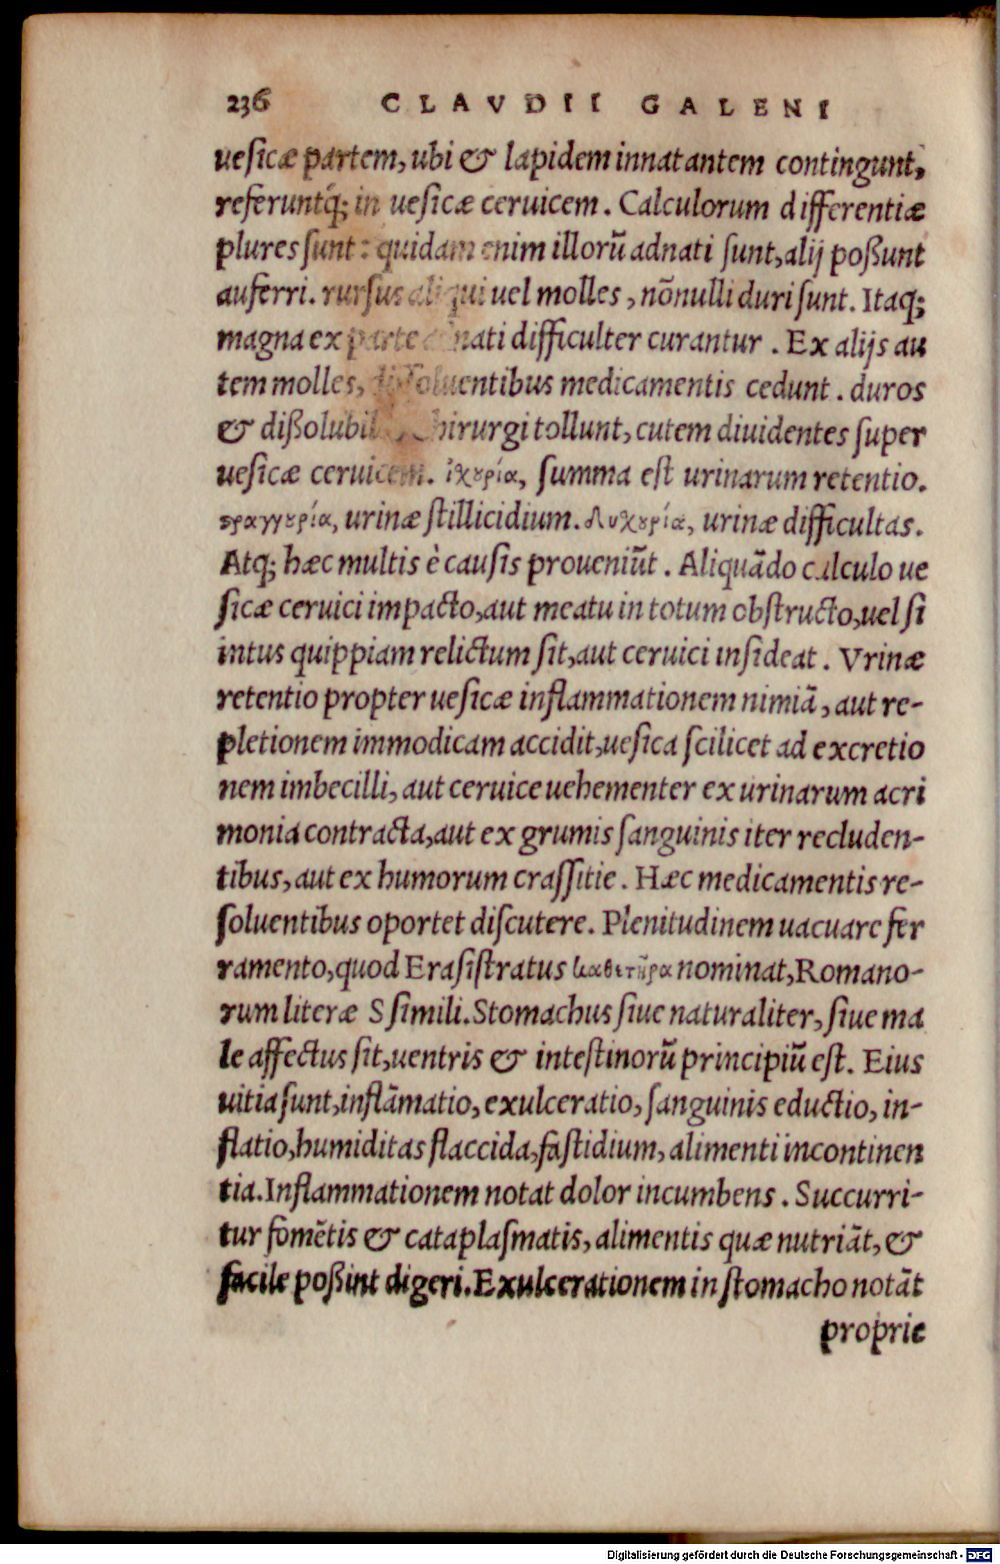 236 CLAVDII GALENI
uesicæ partem, ubi & lapidem innatantem contingunt,
referuntq́; in uesicæ ceruicem. Calculorum differentiæ
plures sunt: quidam enim illorũ adnati sunt, alij poßunt
auferri. rursus aliqui uel molles, nõnulli duri sunt. Itaq;
magna ex parte adnati difficulter curantur. Ex alijs au
tem molles, dissoluentibus medicamentis cedunt. duros
& dißolubil chirurgi tollunt, cutem diuidentes super
uesicæ ceruicem. ἰχȣρία, summa est urinarum retentio.
ϛραγγȣρία, urinæ stillicidium. δυχȣρία, urinæ difficultas.
Atq; hæc multis è causis proueniũt. Aliquãdo calculo ue
sicæ ceruici impacto, aut meatu in totum obstructo, uel si
intus quippiam relictum sit, aut ceruici insideat. Vrinæ
retentio propter uesicæ inflammationem nimiã, aut re-
pletionem immodicam accidit, uesica scilicet ad excretio
nem imbecilli, aut ceruice uehementer ex urinarum acri
monia contracta, aut ex grumis sanguinis iter recluden-
tibus, aut ex humorum crassitie. Hæc medicamentis re-
soluentibus oportet discutere. Plenitudinem uacuare fer
ramento, quod Erasistratus καθετῆρα nominat, Romano-
rum literæ S simili. Stomachus siue naturaliter, siue ma
le affectus sit, uentris & intestinorũ principiũ est. Eius
uitia sunt, inflãmatio, exulceratio, sanguinis eductio, in-
flatio, humiditas flaccida, fastidium, alimenti incontinen
tia. Inflammationem notat dolor incumbens. Succurri-
tur fomẽtis & cataplasmatis, alimentis quæ nutriãt, &
facile poßint digeri. Exulcerationem in stomacho notãt
proprie
Digitalisierung gefördert durch die Deutsche Forschungsgemeinschaft - DFG